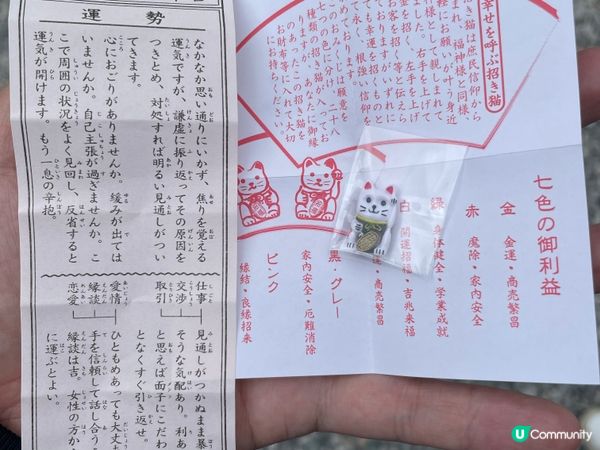 運勢
なかなか思い通りにいかず、焦りを覚える
運気ですが、謙虚に振り返ってその原因を
つきとめ、対処すれば明るい見通しがつい
てきます。
心におごりがありませんか。緩みが出ては
いませんか。自己主張が過ぎませんか。こ
こで周囲の状況をよく見回し、反省すると
運気が開けます。もう一息の辛抱。
仕事
交渉
取引
見通しがつかぬまま暴
そうな気配あり。利あ
と思えば面子にこだわ
となくすぐ引き返せ。
愛情
縁談
恋愛
ひともめあっても大丈
手を信頼して話し合う
縁談は吉。女性の方か
に運ぶとよい。
幸せを呼ぶ招き猫
き猫は庶民信仰から
まれ、福神様と同様、
軽にお願いが叶う身近
様として親しまれて
ました。右手を上げて
金を招く、左手を上げ
お客を招く等と伝えら
ておりますがいずれに
ても幸運を招くものと
て永く、根強い信仰を
つの色に分け、二十八
種類の招き猫が入ってお
りますが、あなたに御縁
お財布等に入れて大切
にお持ちください。
七色の御利益
金 金運・商売繁昌
赤 魔除・家内安全
緑 身体健全・学業成就
白 開運招福・吉兆来福
・商売繁昌
黒・グレー
家内安全・厄難消除
ピンク
縁結・良縁招来
U Community